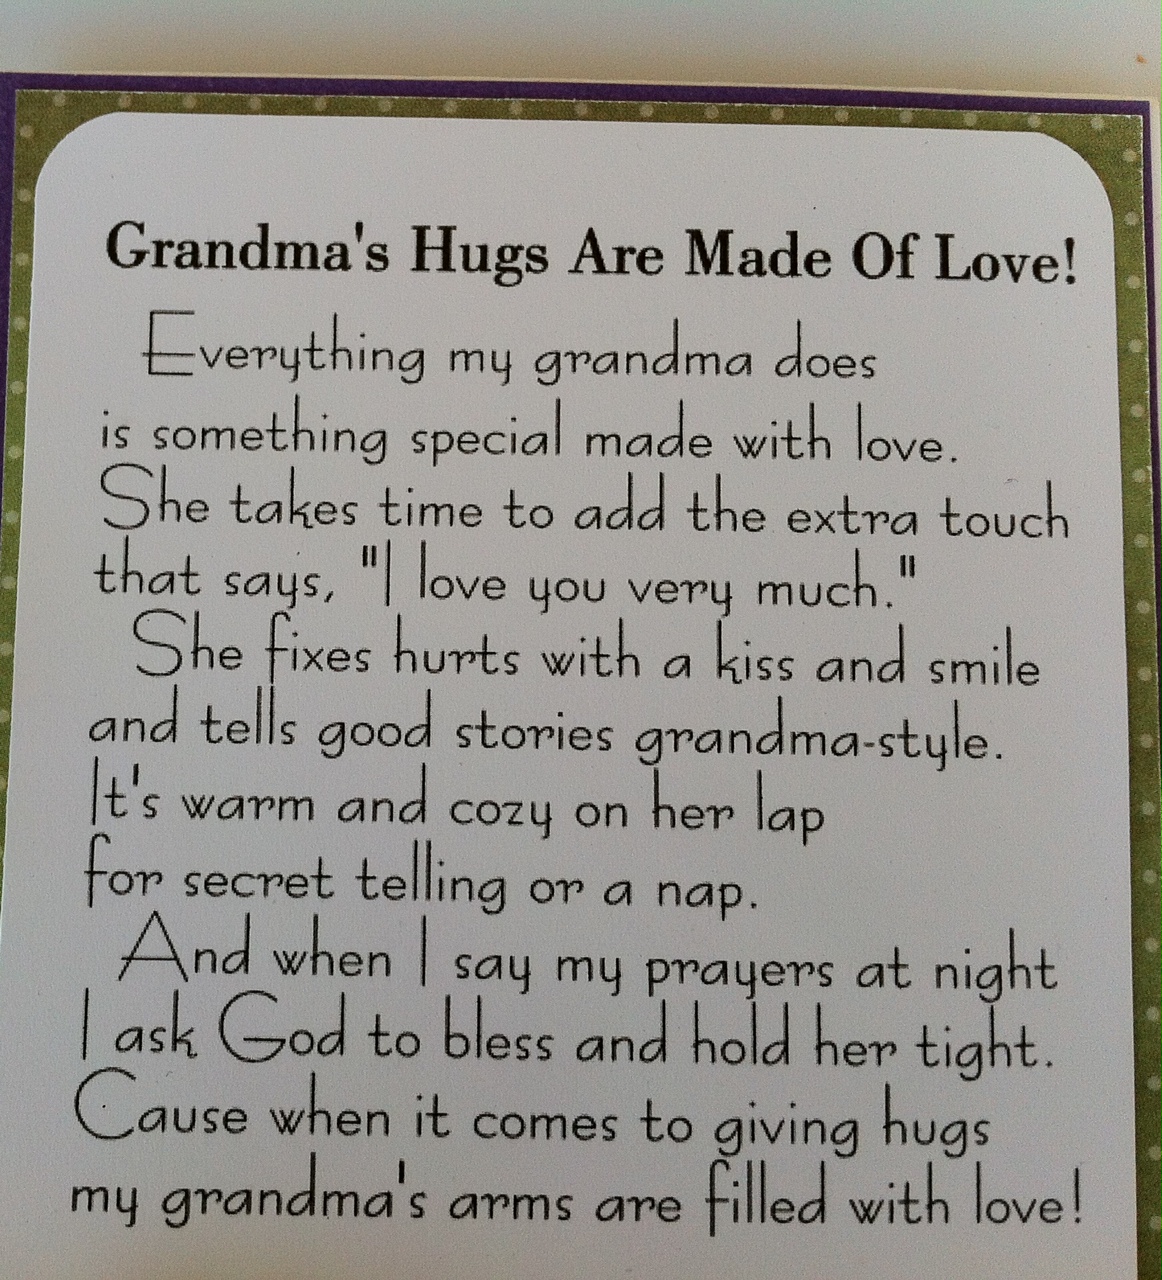 Grandma's Hugs Are Made Of Love!
Everything my grandma does
is something special made with love.
She takes time to add the extra touch
that says, "I love you very much."
She fixes hurts with a kiss and smile
and tells good stories grandma-style.
It's warm and cozy on her lap
for secret telling or a nap.
And when I say my prayers at night
I ask God to bless and hold her tight.
Cause when it comes to giving hugs
my grandma's arms are filled with love!